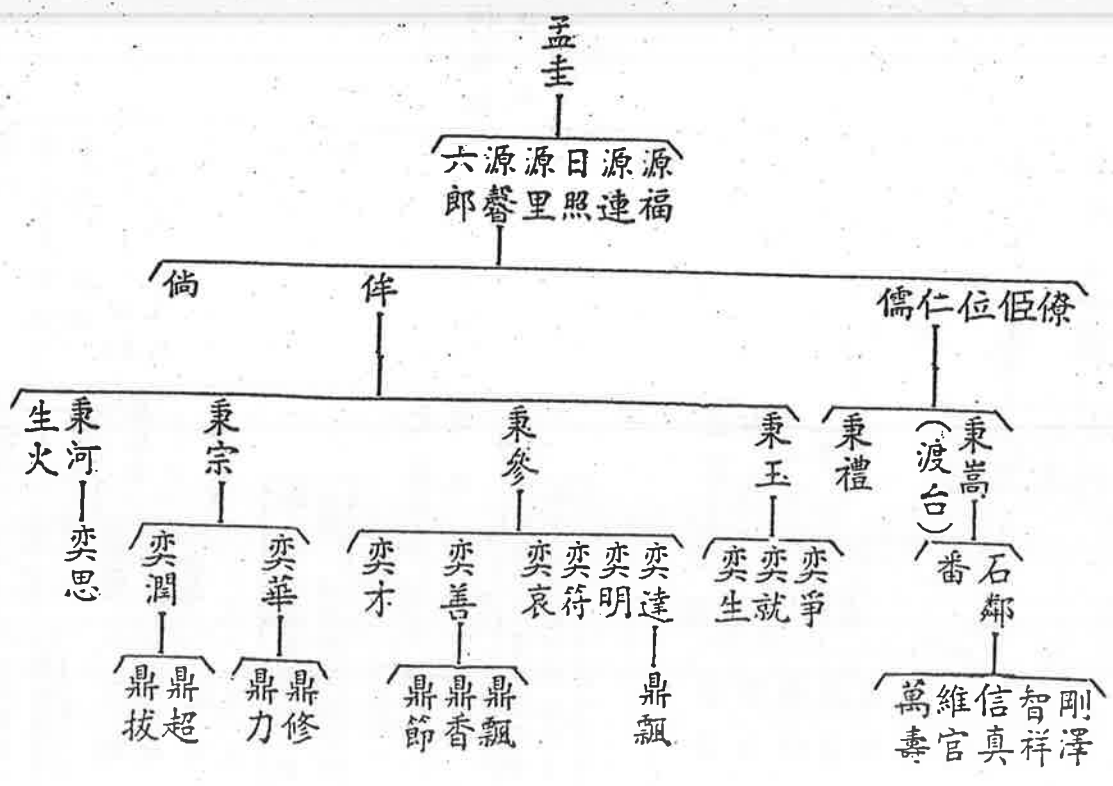 孟圭
源福
源連
日照
源里
源馨
六郎
僚
位
仁
儒
侔
倘
秉嵩
(渡台)
秉禮
秉玉
秉參
秉宗
秉河
生火
石鄰
番
奕爭
奕就
奕生
奕達
奕明
奕符
奕哀
奕善
奕才
奕華
奕潤
奕思
剛澤
智祥
信真
維官
萬壽
鼎飄
鼎飄
鼎香
鼎節
鼎修
鼎力
鼎超
鼎拔